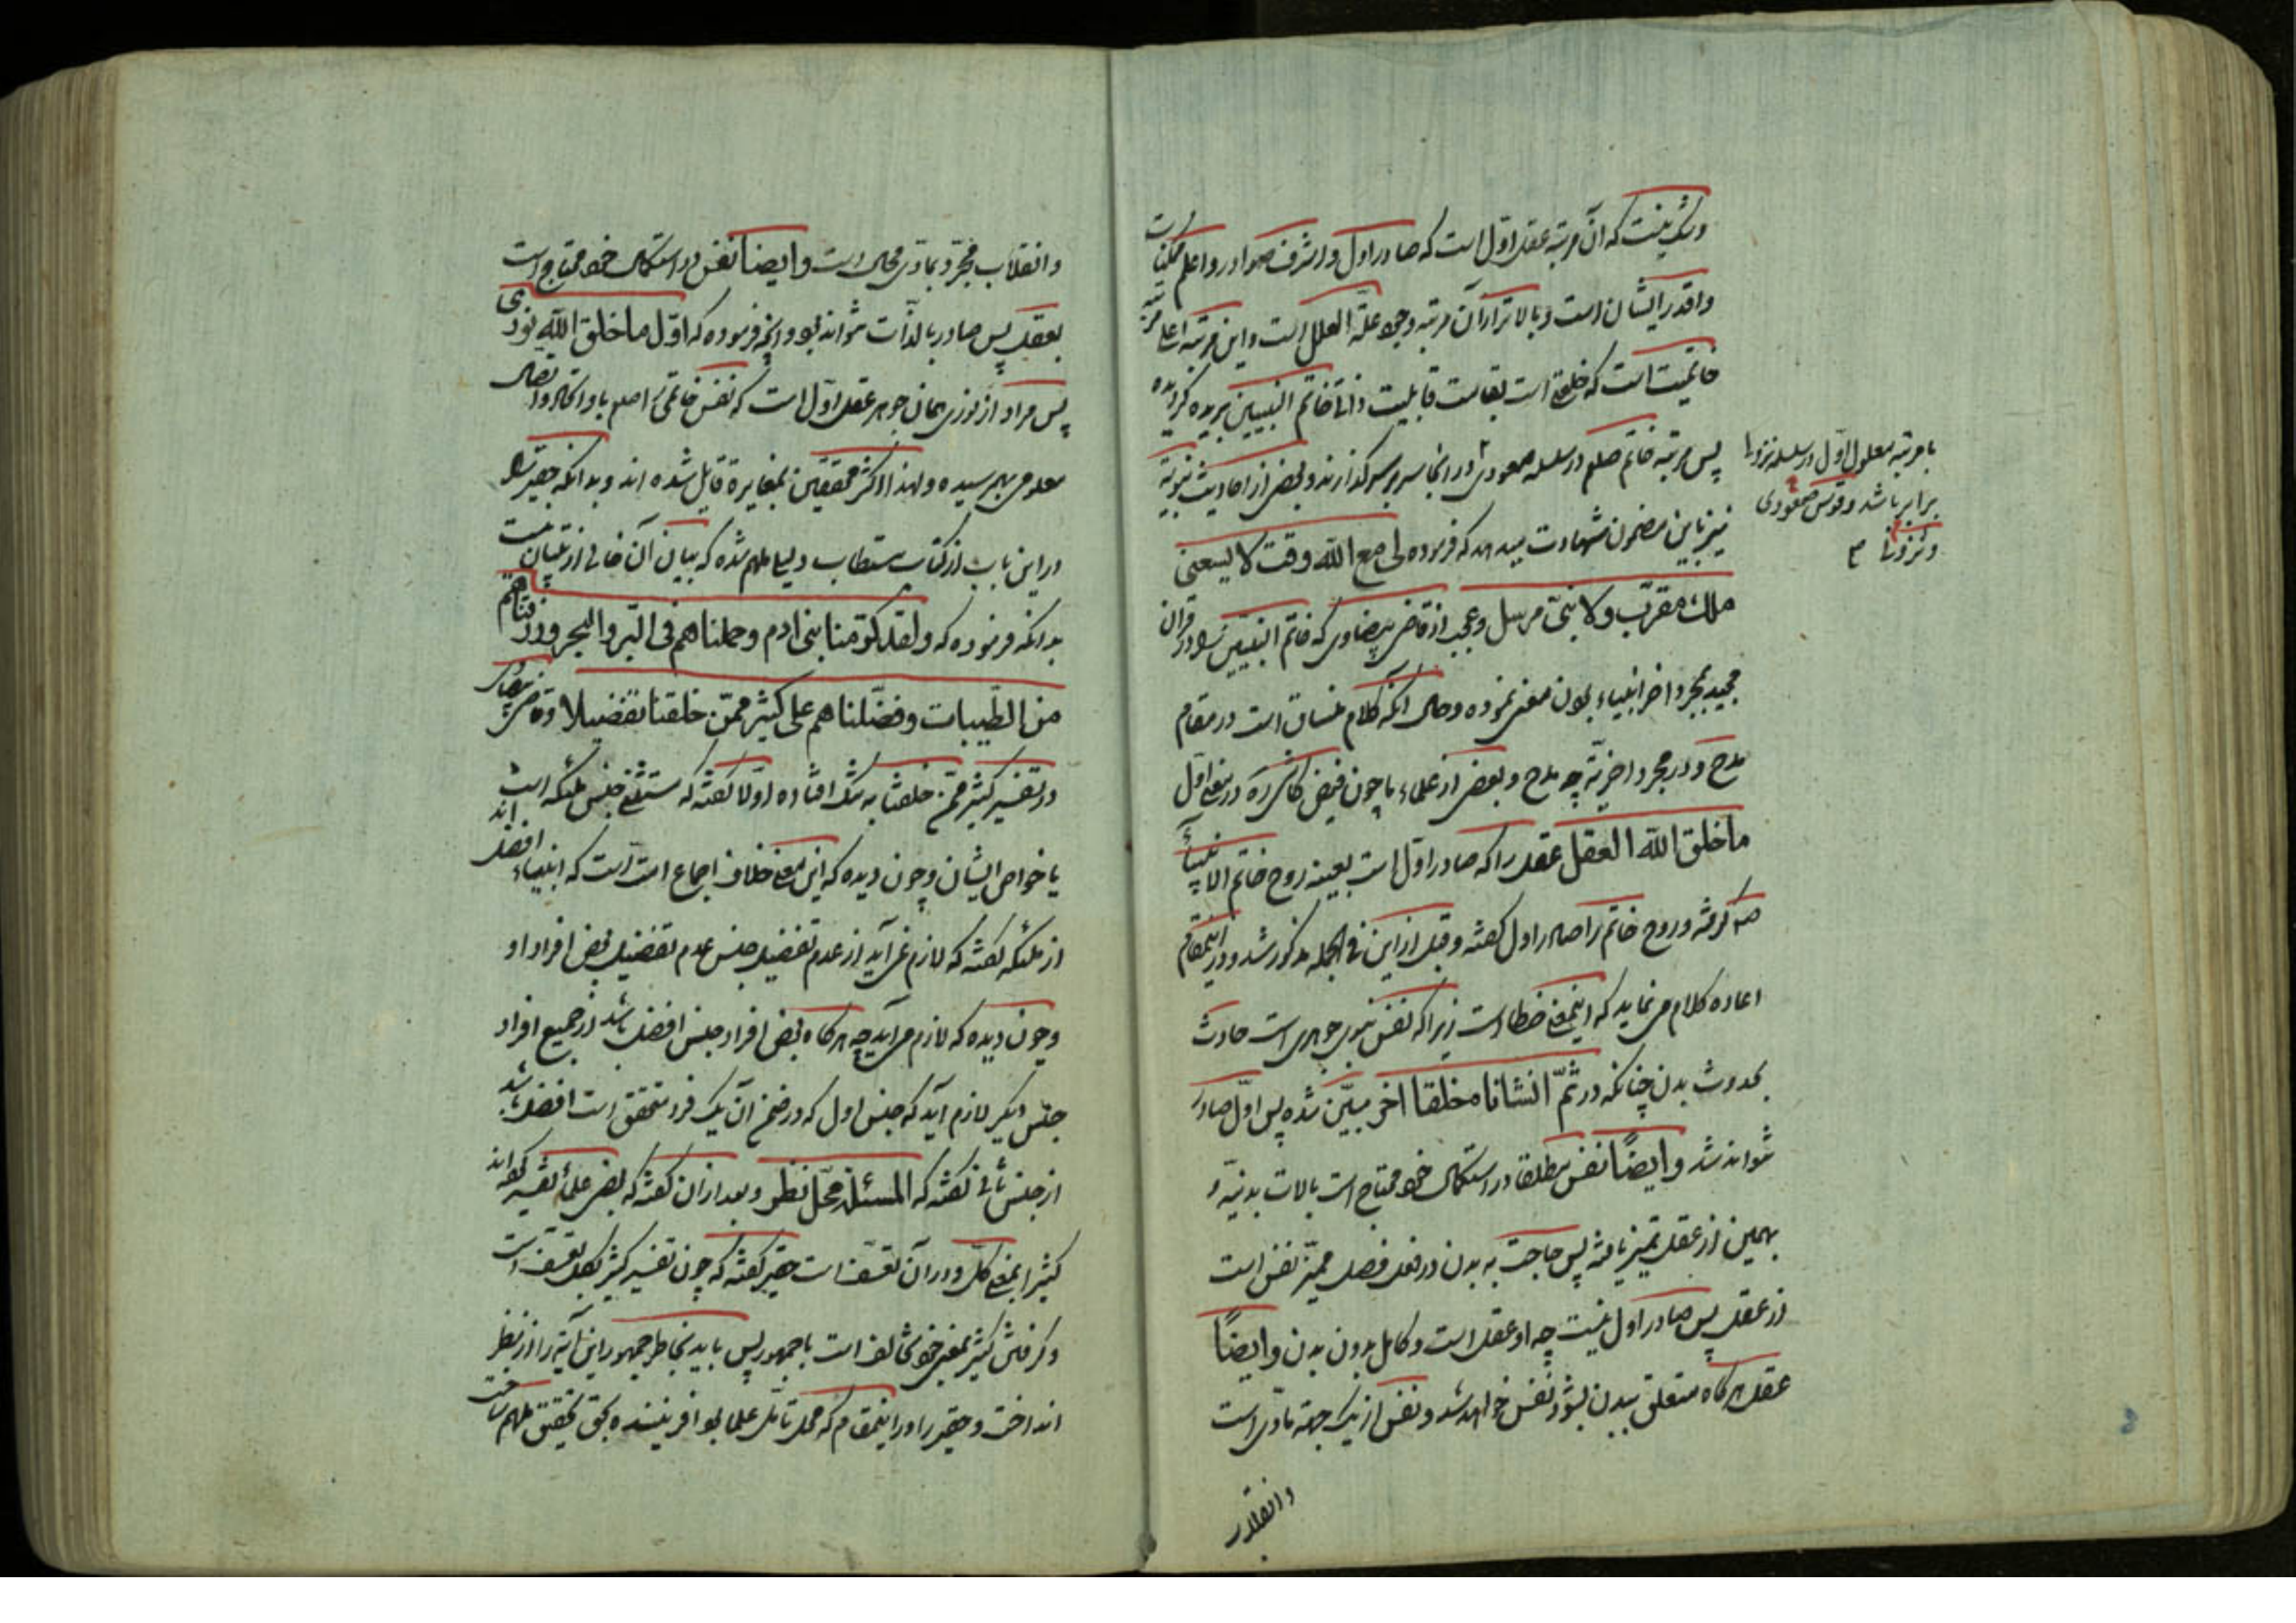 وشک نیست که آن مرتبه عقل اول است که صادر اول و اشرف صوادر و اعلم ممکنات
و اقدر ایشان است و بالاتر از آن مرتبه وجود علة العلل است و این مرتبه اعلی مرتبه
خاتمیت است که خلقی است بقامت قابلیت ذاتی خاتم النبیین بریده کرا
پس مرتبه خاتم صلعم در سلسله صعودی در انجا سر بر سر گذارند و بعضی از احادیث نبویّه
با مرتبه معلول اول در سلسله نزول
برابر باشد و قوس صعودی
و نزول
نیز باین مضمون شهادت میدهد که فرموده لی مع الله وقت لا یسعنی
ملک مقرّب ولا نبیّ مرسل و عجب از قاضی بیضاوی که خاتم النبیین را در قرآن
مجید بمجرد اخر انبیاء بودن معنی نموده و حال آنکه کلام منساق است در مقام
مدح و در مجرد اخریّة چه مدح و بعضی از علماء ما چون فیض کاشی ره در معنی اوّل
ما خلق الله العقل عقل را که صادر اوّل است بعینه روح خاتم الانبیآء
ص گرفته و روح خاتم را صادر اول گفته و قبل از این فی الجمله مذکور شد و در اینمقام
اعاده کلام می نماید که اینمعنی خطا است زیرا که نفس نبوی جوهری است حادث
بحدوث بدن چنانکه در ثمّ انشاناه خلقا اخر مبیّن شده پس اوّل صادر
نتواند شد و ایضًا نفس مطلقا در استکمال خود محتاج است بالات بدنیّه و
بهمین از عقل تمیز یافته پس حاجت به بدن در فعل فصل ممیّز نفس است
از عقل پس صادر اول نیست چه او عقل است و کامل بدون بدن و ایضًا
عقل هرگاه متعلق ببدن بشود نفس خواهد شد و نفس از یک جهة مادّی است
وانقلاب
وانقلاب مجرّد بمادّی محال است و ایضا نفس در استکمال خود محتاج است
بعقل پس صادر بالذّات نتواند بود و انچه فرموده که اوّل ما خلق الله نوری
پس مراد از نوری همان جوهر عقل اوّل است که نفس خاتمی صلعم باو اتصال
معلومی بهم رسیده و لهذا اکثر محققین بمغایرة قایل شده اند و بدانکه حقیر را
در این باب از کتاب مستطاب دلیلی ملهم شده که بیان آن خالی از تبیان نیست
بدانکه فرموده که ولقد کرّمنا بنی ادم وحملناهم فی البرّ والبحر ورزقناهم
من الطّیبات وفضّلناهم علی کثیر ممّن خلقنا تفضیلا و قاضی بیضاوی
در تفسیر کثیر ممّن خلقنا به شک افتاده اوّلا گفته که مستثنی جنس ملئکه است
یا خواص ایشان و چون دیده که این معنی خلاف اجماع امت است که انبیاء افضل اند
از ملئکه گفته که لازم نمی آید از عدم تفضیل جنس عدم تفضیل بعض افراد او
و چون دیده که لازم می آید چه هرگاه بعض افراد جنس افضل باشد از جمیع افراد
جنس دیگر لازم آید که جنس اول که در ضمن آن یک فرد متحقق است افضل باشد
از جنس ثانی گفته که المسئلة محلّ نظر و بعد از آن گفته که بعضی علماء تفسیر کرده اند
کثیر را بمعنی کلّ و در آن تعسّف است حقیر گفته که چون تفسیر کثیر بکل تعسّف است
و گرفتن کثیر بمعنی خود مخالف است با جمهور پس باید بخاطر جمهور این آیة را از نظر
انداخت و حقیر را در اینمقام که محل تأمّل علما بود افریننده بحق تحقیق ملهم ساخت